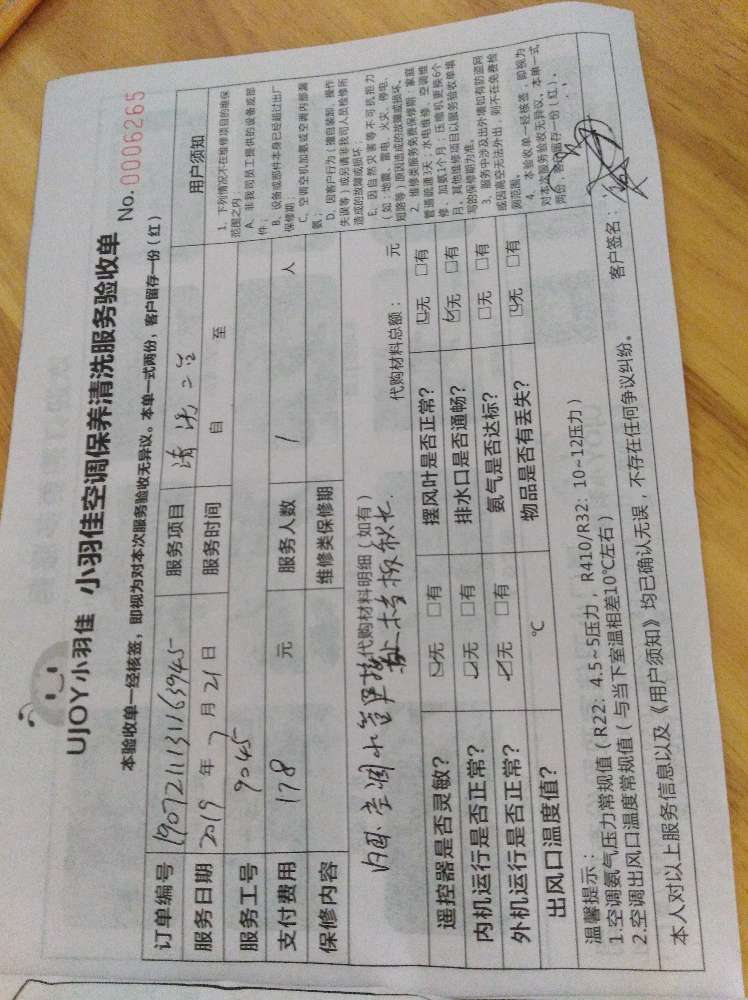 UJOY小羽佳 小羽佳空调保养清洗服务验收单 No.0006265
本验收单一经核签，即视为对本次服务验收无异议。本单一式两份，客户留存一份（红）
订单编号 19072111311163945 服务项目 清洗二台
服务日期 2019 年 7 月 21 日 服务时间 自 至
服务工号 9045
支付费用 178 元 服务人数 1 人
保修内容 维修类保修期
代购材料明细（如有） 代购材料总额： 元
空调水管
遥控器是否灵敏? ☑无 □有 摆风叶是否正常? ☑无 □有
内机运行是否正常? ☑无 □有 排水口是否通畅? ☑无 □有
外机运行是否正常? ☑无 □有 氨气是否达标? □无 □有
出风口温度值? ℃ 物品是否有丢失? ☑无 □有
温馨提示：
1.空调氨气压力常规值（R22：4.5~5压力，R410/R32：10~12压力）
2.空调出风口温度常规值（与当下室温相差10℃左右）
本人对以上服务信息以及《用户须知》均已确认无误，不存在任何争议纠纷。 客户签名：
用户须知
1、下列情况不在维修项目的维保
范围之内
A、非我司员工提供的设备或部
件；
B、设备或部件本身已经超过出厂
保修期；
C、空调空机加氨或空调内部漏
氨；
D、因客户行为（擅自装卸、操作
失误等）或另请非我司人员检修所
造成的故障或损坏；
E、因自然灾害等不可抗拒力
（如：地震、雷电、火灾、停电、
短路等）原因造成的故障或损坏。
2、维修类服务免费保修期：家庭
管道疏通3天；水电维修、空调维
修、加氨1个月；压缩机更换6个
月。其他维修项目以服务验收单填
写的保修期为准。
3、服务中涉及出外墙如有防盗网
或因高空无法外出，则不在免费检
测范围。
4、本验收单一经核签，即视为
对本次服务验收无异议，本单一式
两份，客户留存一份（红）。